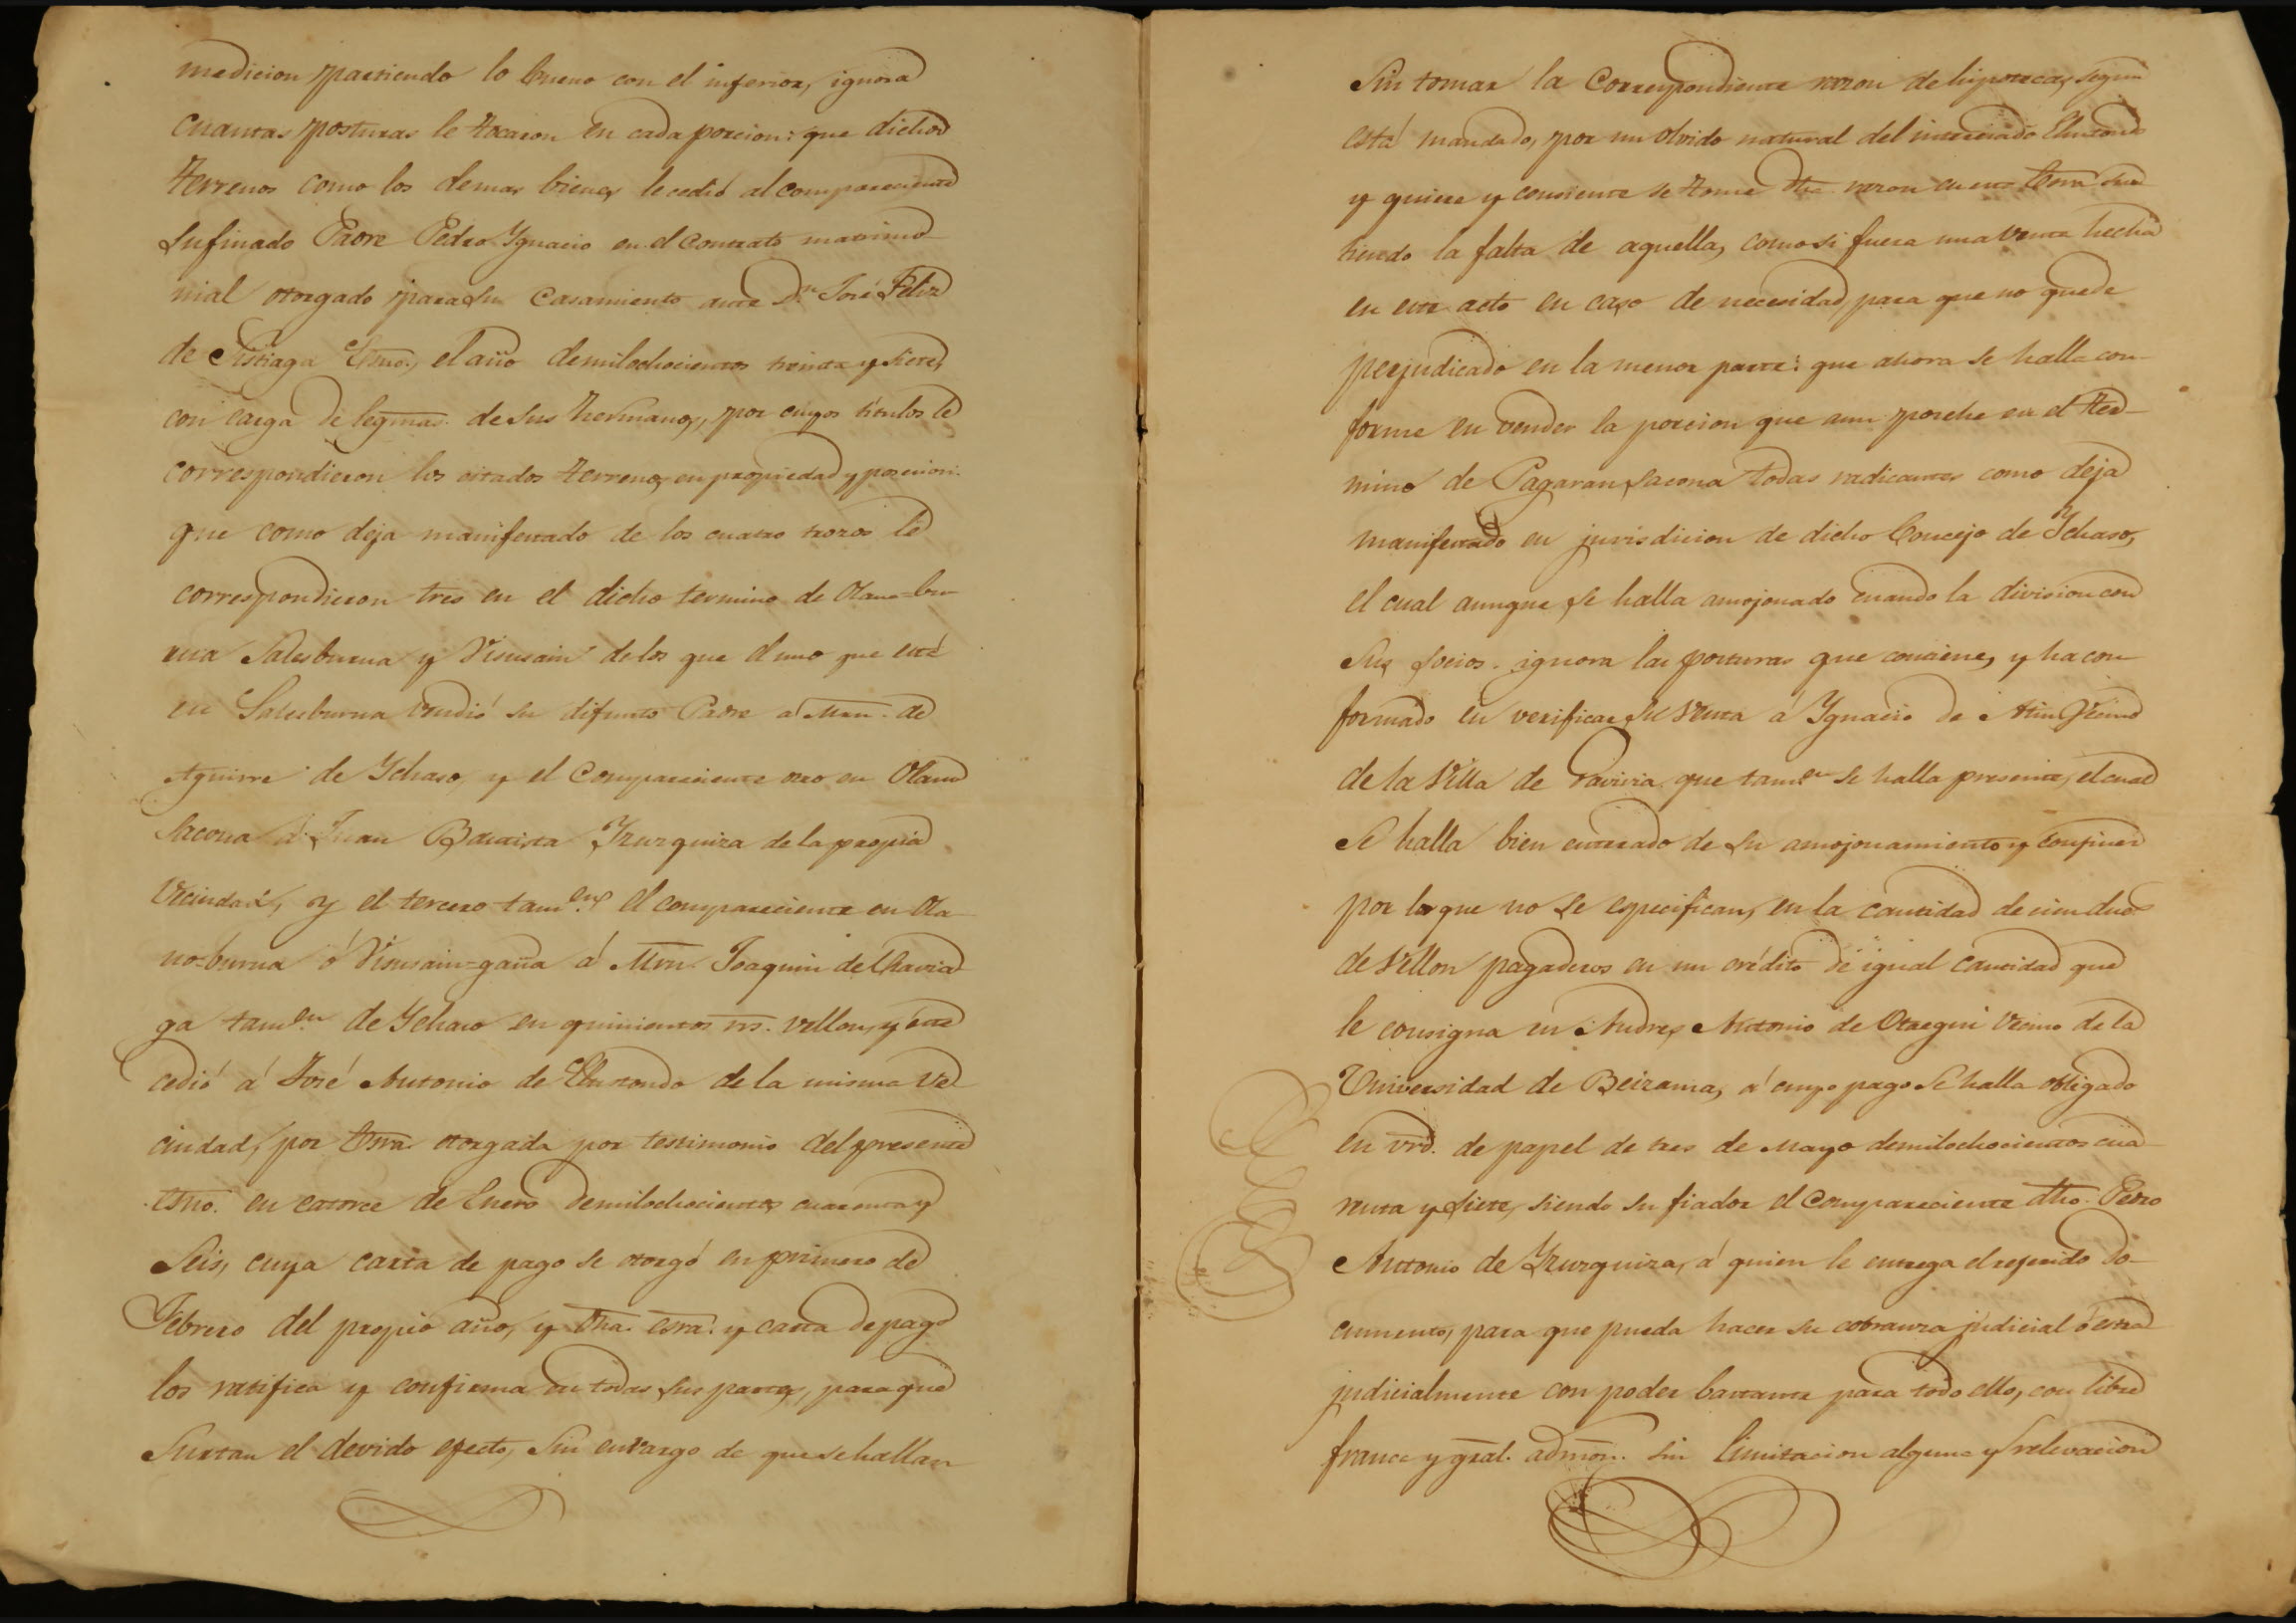 medicion partiendo lo bueno con el inferior, ignora
cuantas posturas le tocaron en cada porcion: que dichos
terrenos como los demas bienes le cedió al compareciente
su finado Padre Pedro Ygnacio en el contrato matrimo-
nial otorgado para su casamiento ante Dn. José Feliz
de Sistiaga Esno. el año de mil ochocientos treinta y siete,
con carga de legmas. de sus hermanos, por cuyos titulos le
correspondieron los citados terrenos en propiedad y posesion:
que como deja manifestado de los cuatro trozos le
correspondieron tres en el dicho termino de Olano-bu-
rua Salesburua y Visusain de los que el uno que está
en Salesburua vendió su difunto Padre a Mrn. de
Aguirre de Ychaso, y el compareciente otro en Olano
Sacona á Juan Bautista Yzurquiza de la propia
Vecindad, y el tercero tamen. el compareciente en Ola-
no-burua ó Visusain=gaña á Mrn. Joaquin de Echavia
ga tamen. de Ychaso en quinientos rrs. vellon, y este
cedió á José Antonio de Elustondo de la misma Ve-
cindad, por Esra. otorgada por testimonio del presente
Esno. en catorce de Enero de mil ochocientos cuarenta y
Seis, cuya carta de pago se otorgó en primero de
Febrero del propio año, y dha. esra. y carta de pago
los ratifica y confirma en todas sus partes, para que
Surtan el devido efecto, Sin envargo de que se hallan
Sin tomar la correspondiente razon de hipotecas, segun
está mandado, por un olvido natural del interesado Elustondo
y quiere y consiente se tome dha. razon en esta Esra. su-
tiendo la falta de aquella, como si fuera una venta hecha
en este acto en caso de necesidad, para que no quede
perjudicado en la menor parte: que ahora se halla con-
forme en vender la porcion que aun posehe en el ter-
mino de Pagaran Sacona todas radicantes como deja
manifestado en jurisdicion de dicho Concejo de Ychaso,
el cual aunque se halla amojonado cuando la division con
Sus socios. ignora las posturas que contiene, y ha con-
formado en verificar su venta á Ygnacio de vecino
de la Villa de Gaviria que tamen. se halla presente, el cual
Se halla bien enterado de su amojonamiento y confines
por lo que no se especifican, en la cantidad de cien ducs.
de Vellon pagaderos en un crédito de igual cantidad que
le consigna en Andres Antonio de Otaegui Vecino de la
Universidad de Beizama, á cuyo pago se halla obligado
en vrd. de papel de tres de Mayo de mil ochocientos cua-
renta y siete, siendo su fiador el compareciente dho. Pedro
Antonio de Yzurquiza, á quien le entrega el referido do-
cumento, para que pueda hacer su cobranza judicial ó estra
judicialmente con poder bastante para todo ello, con libre
franca y gral. admon. sin limitacion alguna y relevacion